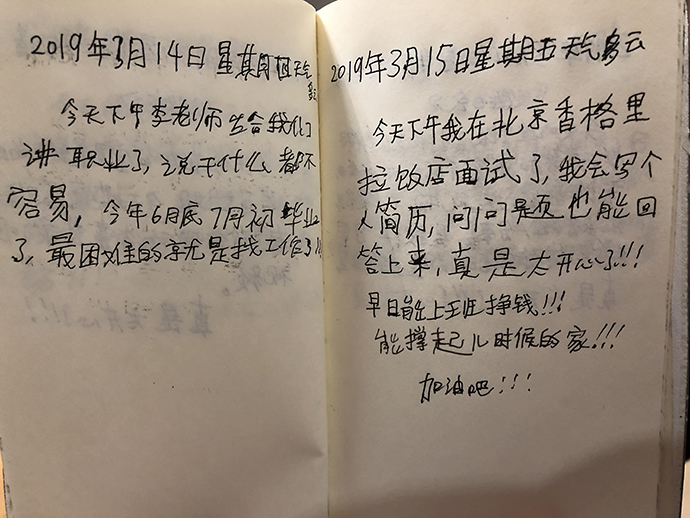 2019年3月14日 星期四 天气
多云
今天下午李老师给我们
讲职业了,说干什么都不
容易,今年6月底7月初毕业
了,最困难的就是找工作了
2019年3月15日星期五天气多云
今天下午我在北京香格里
拉饭店面试了,我会写个
人简历,问问题也能回
答上来,真是太开心了!!!
早日能上班挣钱!!!
能撑起儿时候的家!!!
加油吧!!!